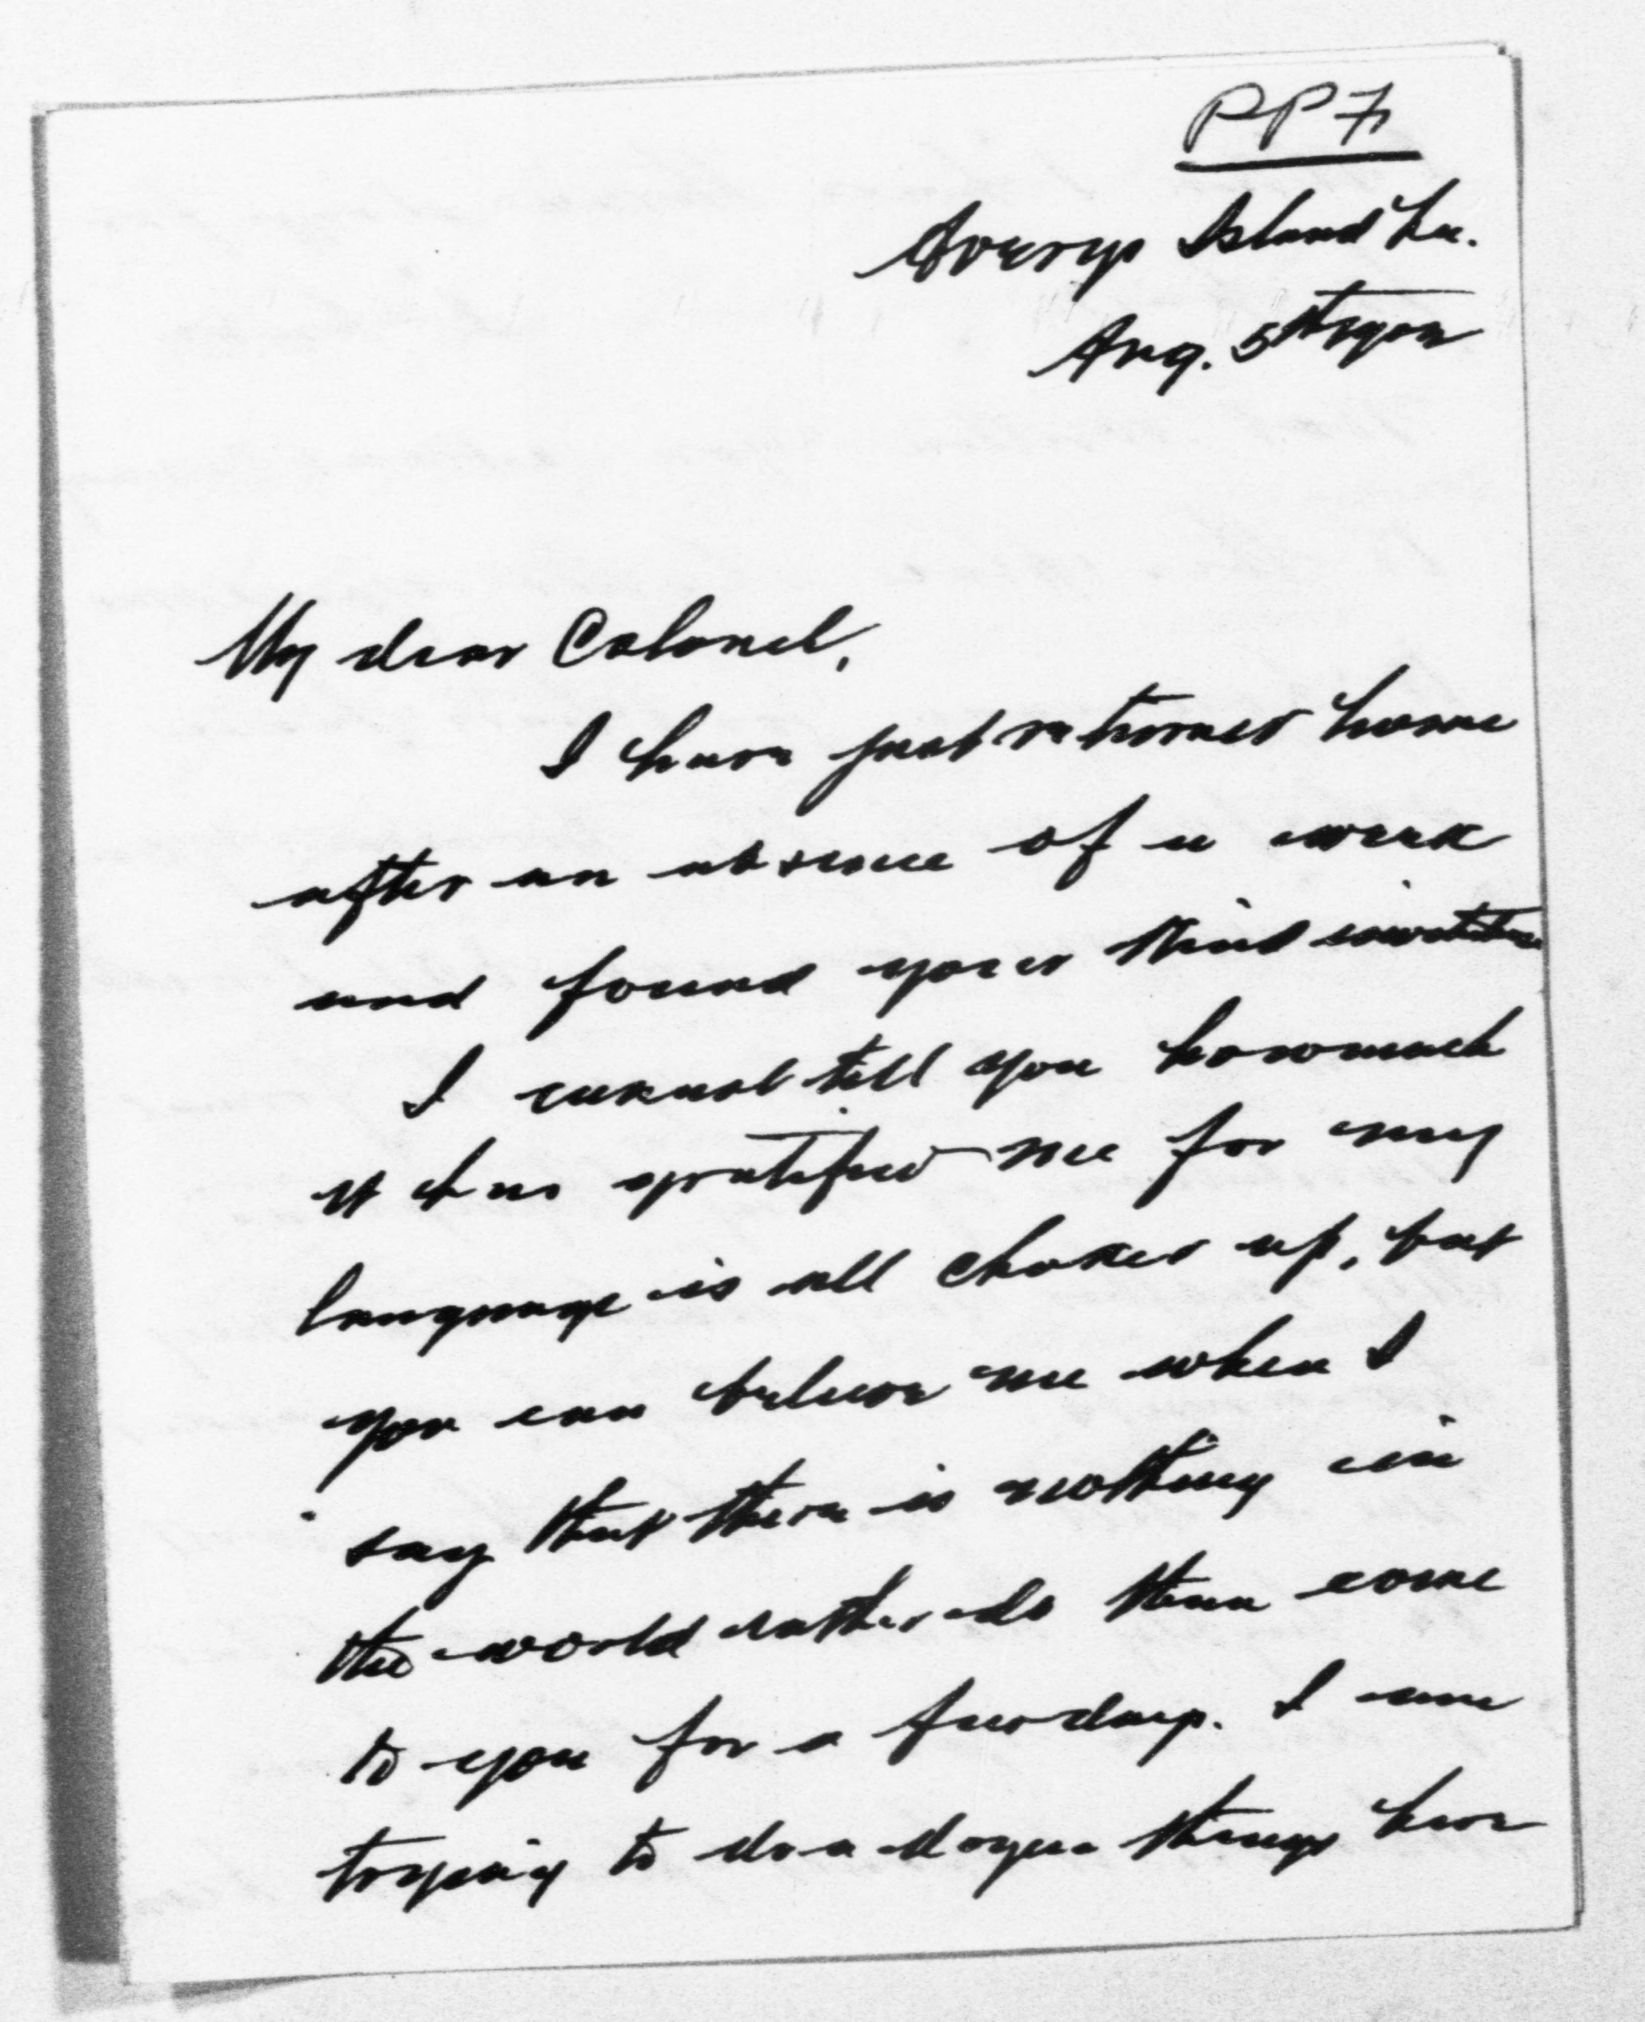 PP7
Averys Island La.
Aug. 5th
My dear Colonel,
I have just returned home
after an absence of a week
and found your kind invitation
I cannot tell you how much
it has gratified me for my
language is all choked up, but
you can believe me when I
say that there is nothing in
the world rather do than come
to you for a few days. I am
trying to do a dozen things here